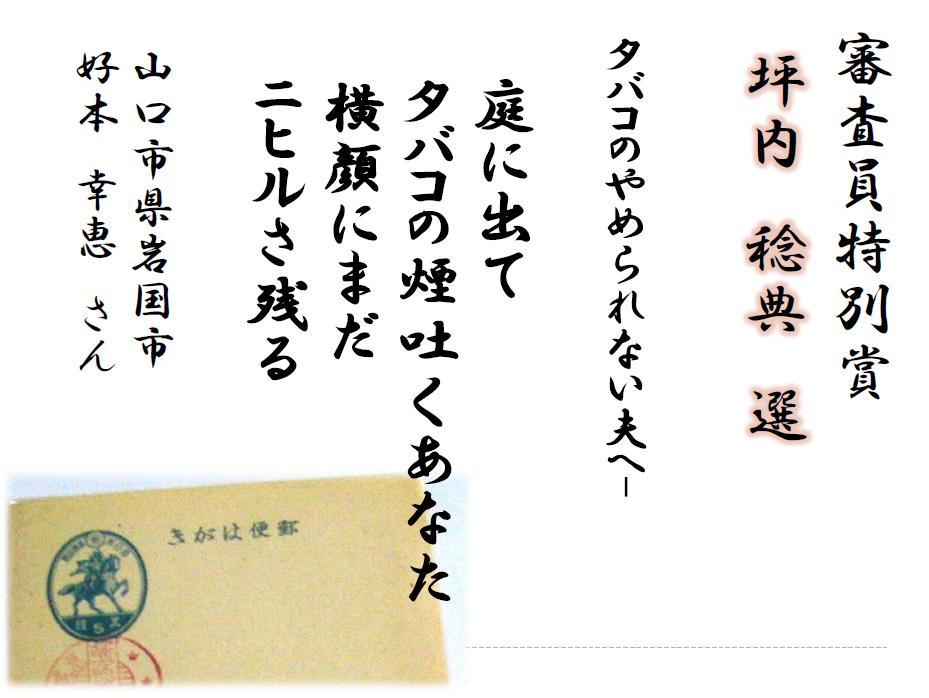 審査員特別賞
坪内　稔典　選
タバコのやめられない夫へ―
庭に出て
タバコの煙吐くあなた
横顔にまだ
ニヒルさ残る
山口市県岩国市
好本　幸恵　さん
きがは便郵